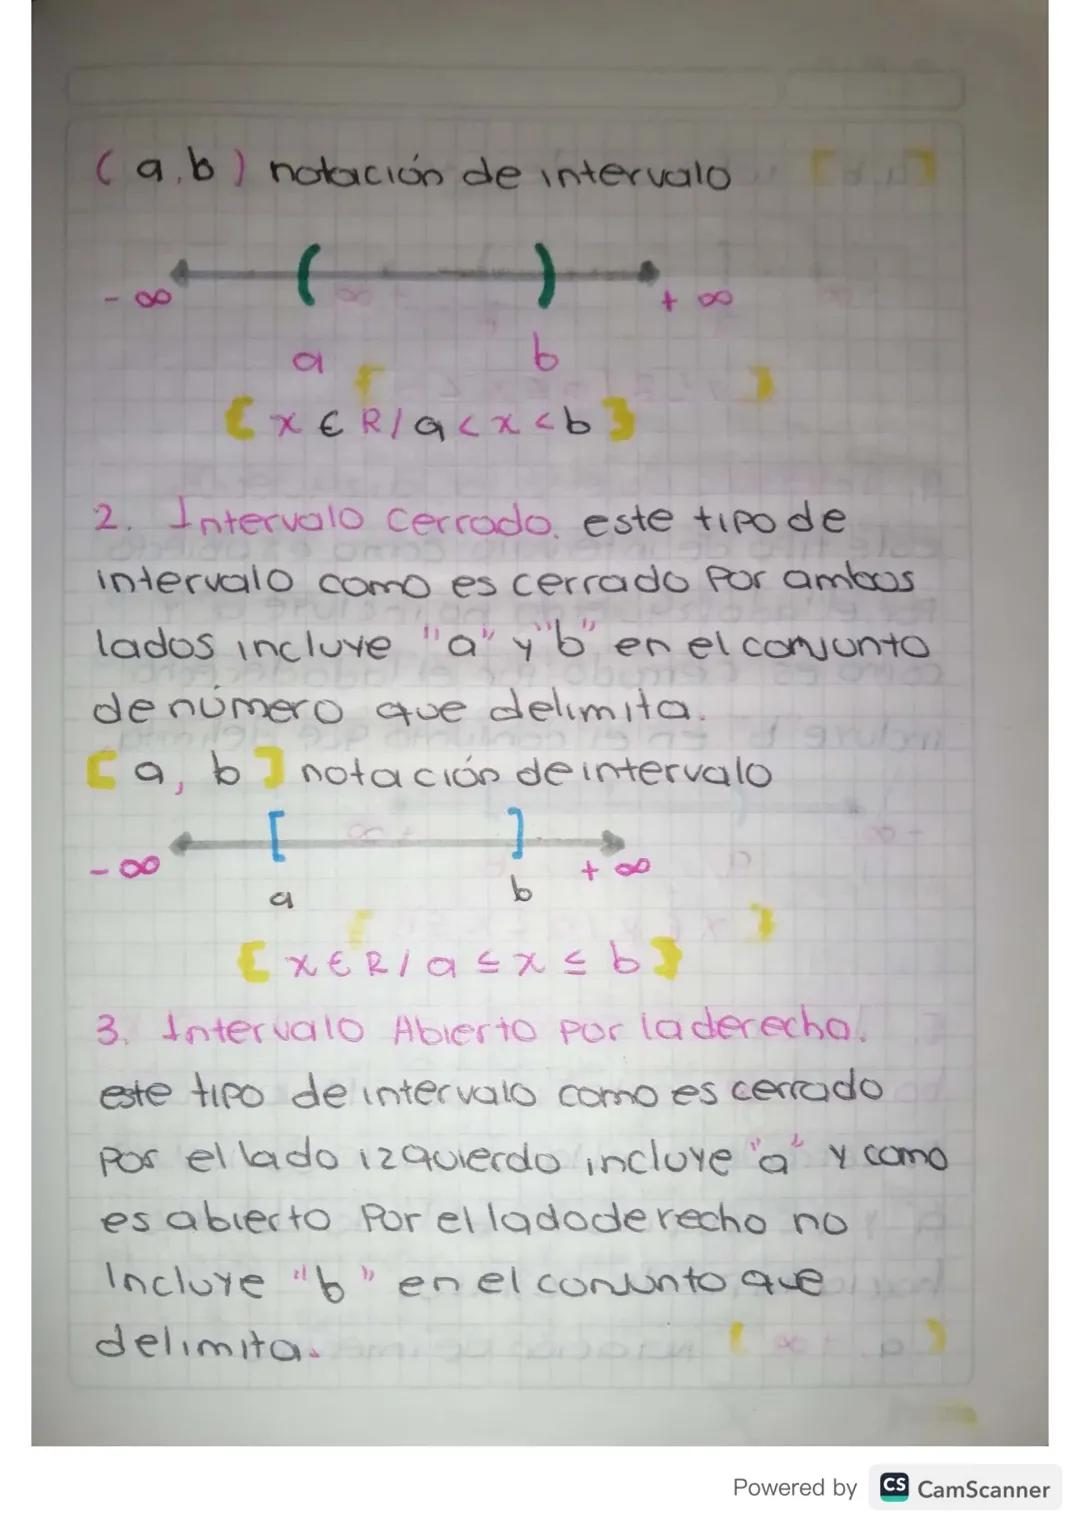 ( a,b ) notación de intervalo
( )
- ∞ + ∞
a b
{ x ∈ R / a < x < b }
2. Intervalo cerrado. este tipo de
intervalo como es cerrado por ambos
lados incluye "a" y "b" en el conjunto
de número que delimita.
[ a, b ] notación de intervalo
[ ]
- ∞ + ∞
a b
{ x ∈ R / a ≤ x ≤ b }
3. Intervalo Abierto por la derecha.
este tipo de intervalo como es cerrado
por el lado izquierdo incluye "a" y como
es abierto por el lado derecho no
incluye "b" en el conjunto que
delimita.
Powered by CS CamScanner